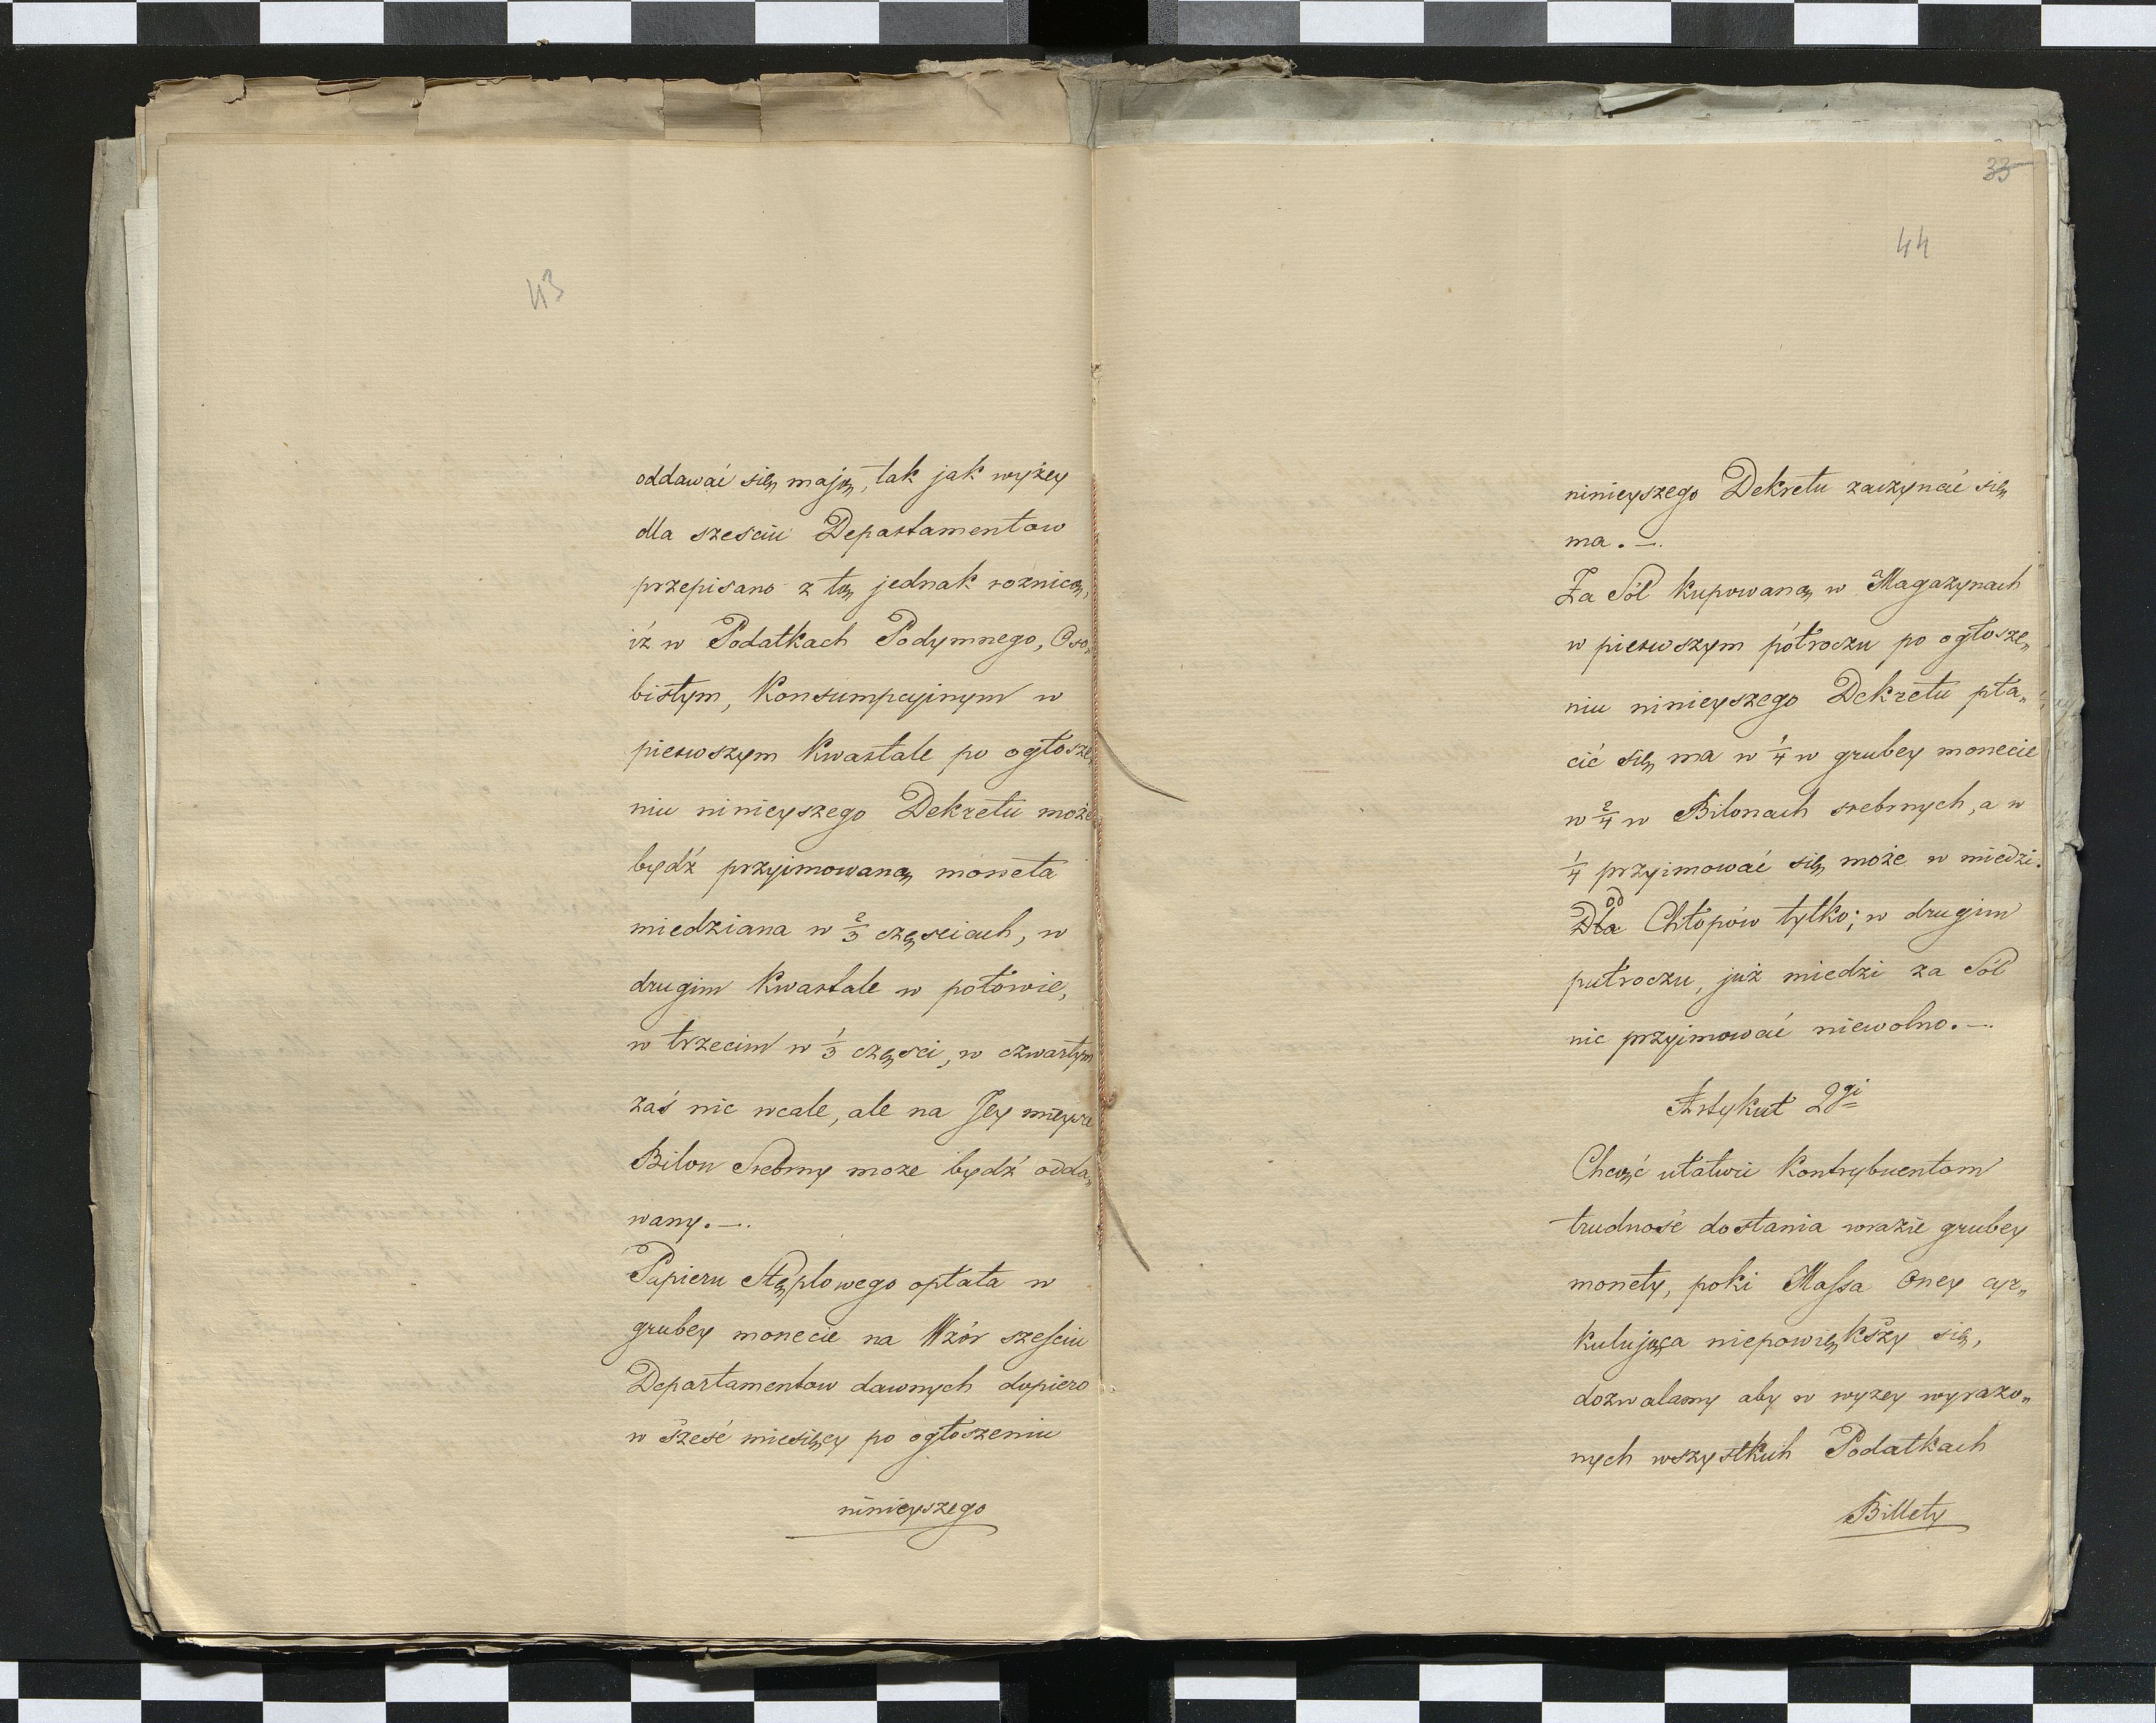 43
oddawać się mają, tak jak wyżey
dla szesciu Departamentow
przepisano z tą jednak roznicą,
iż w Podatkach Podymnego, Oso„
bistym, Konsumpcyjnym w
pierwszym Kwartale po ogłosze„
niu ninieyszego Dekretu może
bydź przyjmowaną moneta
miedziana w 2/3 częsciach, w
drugim Kwartale w połowie,
w trzecim w 1/3 częsci, w czwartym
zaś nic wcale, ale na Jey mieysce
Bilon Srebrny moze bydź odda„
wany.—.
Papieru Stęplowego opłata w
grubey monecie na Wzór szesciu
Departamentow dawnych dopiero
w Sześć miesięcy po ogłoszeniu
ninieyszego
33
44
ninieyszego Dekretu zaczynać się
ma.—.
Za Sól kupowaną w Magazynach
w pierwszym pótroczu po ogłosze„
niu ninieyszego Dekretu pła„
cić się ma w 1/4 w grubey monecie
w 2/4 w Bilonach srebrnych, a w
1/4 przyjmować się może w miedzi.
od
Dla Chłopów tylko; w drugim
putroczu, już miedzi za Sól
nic przyjmować niewolno.—.
Artykuł 2gi
Chcąć ułatwić Kontrybuentom
trudność dostania wrazie grubey
monety, poki Massa Oney cyr„
kulująca niepowiększy się,
dozwalamy aby w wyzey wyrazo„
nych wszystkich Podatkach
Billety